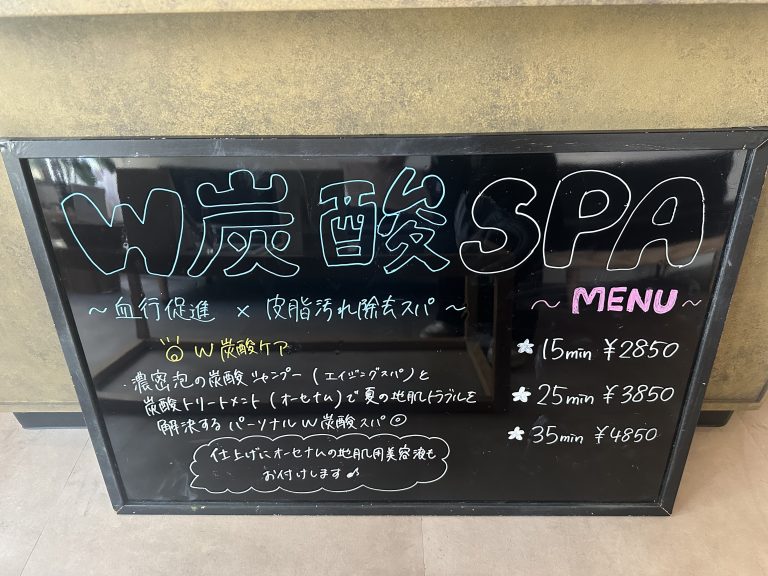 W炭酸SPA
～血行促進 × 皮脂汚れ除去スパ～
W炭酸ケア
濃密泡の炭酸シャンプー（エイジングスパ）と
炭酸トリートメント（オーセナム）で夏の地肌トラブルを
解決するパーソナルW炭酸スパ◎
仕上げにオーセナムの地肌用美容液も
お付けします♪
～MENU～
★15min ¥2850
★25min ¥3850
★35min ¥4850